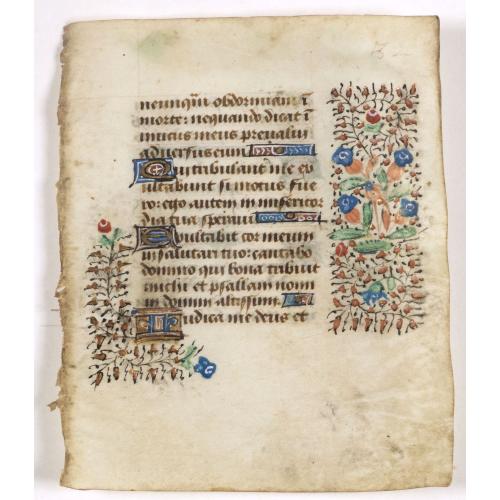 ne unqu̅ obdormiam i̅
morte: nequando dicat i̅
imicus meus prevalui
adversus eum
Qui tribulant me ex
ultabunt si motus fue
ro: ego autem in misericor
dia tua speravi
Exultabit cor meum
in salutari tuo: cantabo
domino qui bona tribuit
michi et psallam nomi
ni domini altissimi.
Iudica me deus et